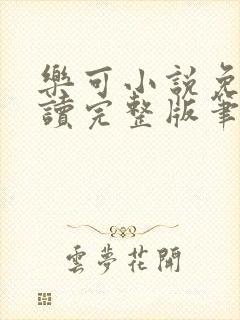 樂可小說免
讀完整版筆
雲夢花開